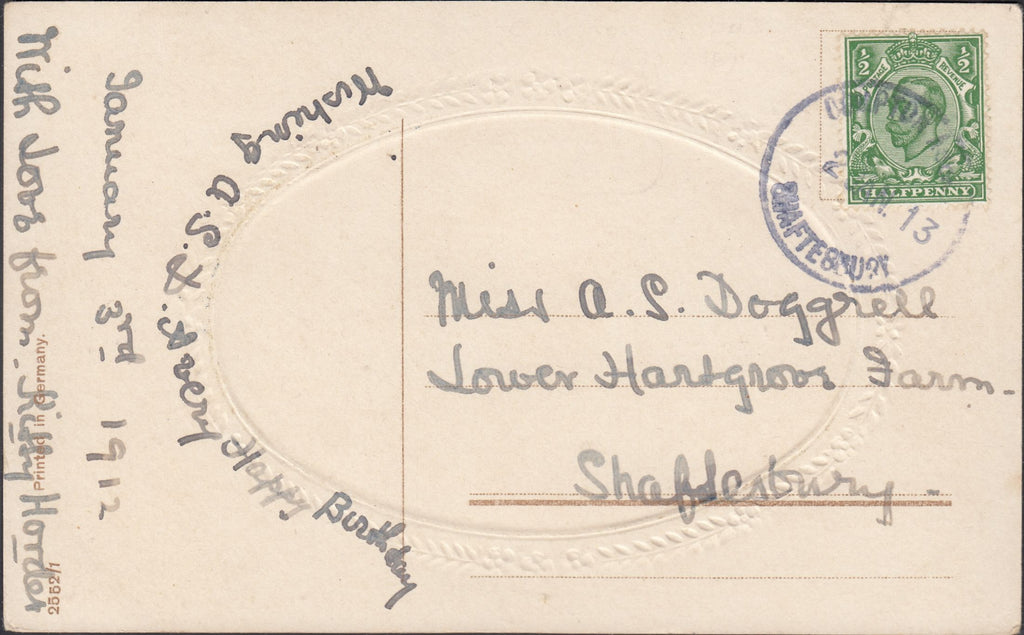 With Love from. Kitty Hander
January 3rd 1912
Wishing A. S. D. a very Happy Birthday
Printed in Germany.
2552/1
½ ½
POSTAGE REVENUE
HALFPENNY
13
SHAFTESBURY
Miss A. S. Doggrell
Lower Hartgrove Farm-
Shaftesbury-